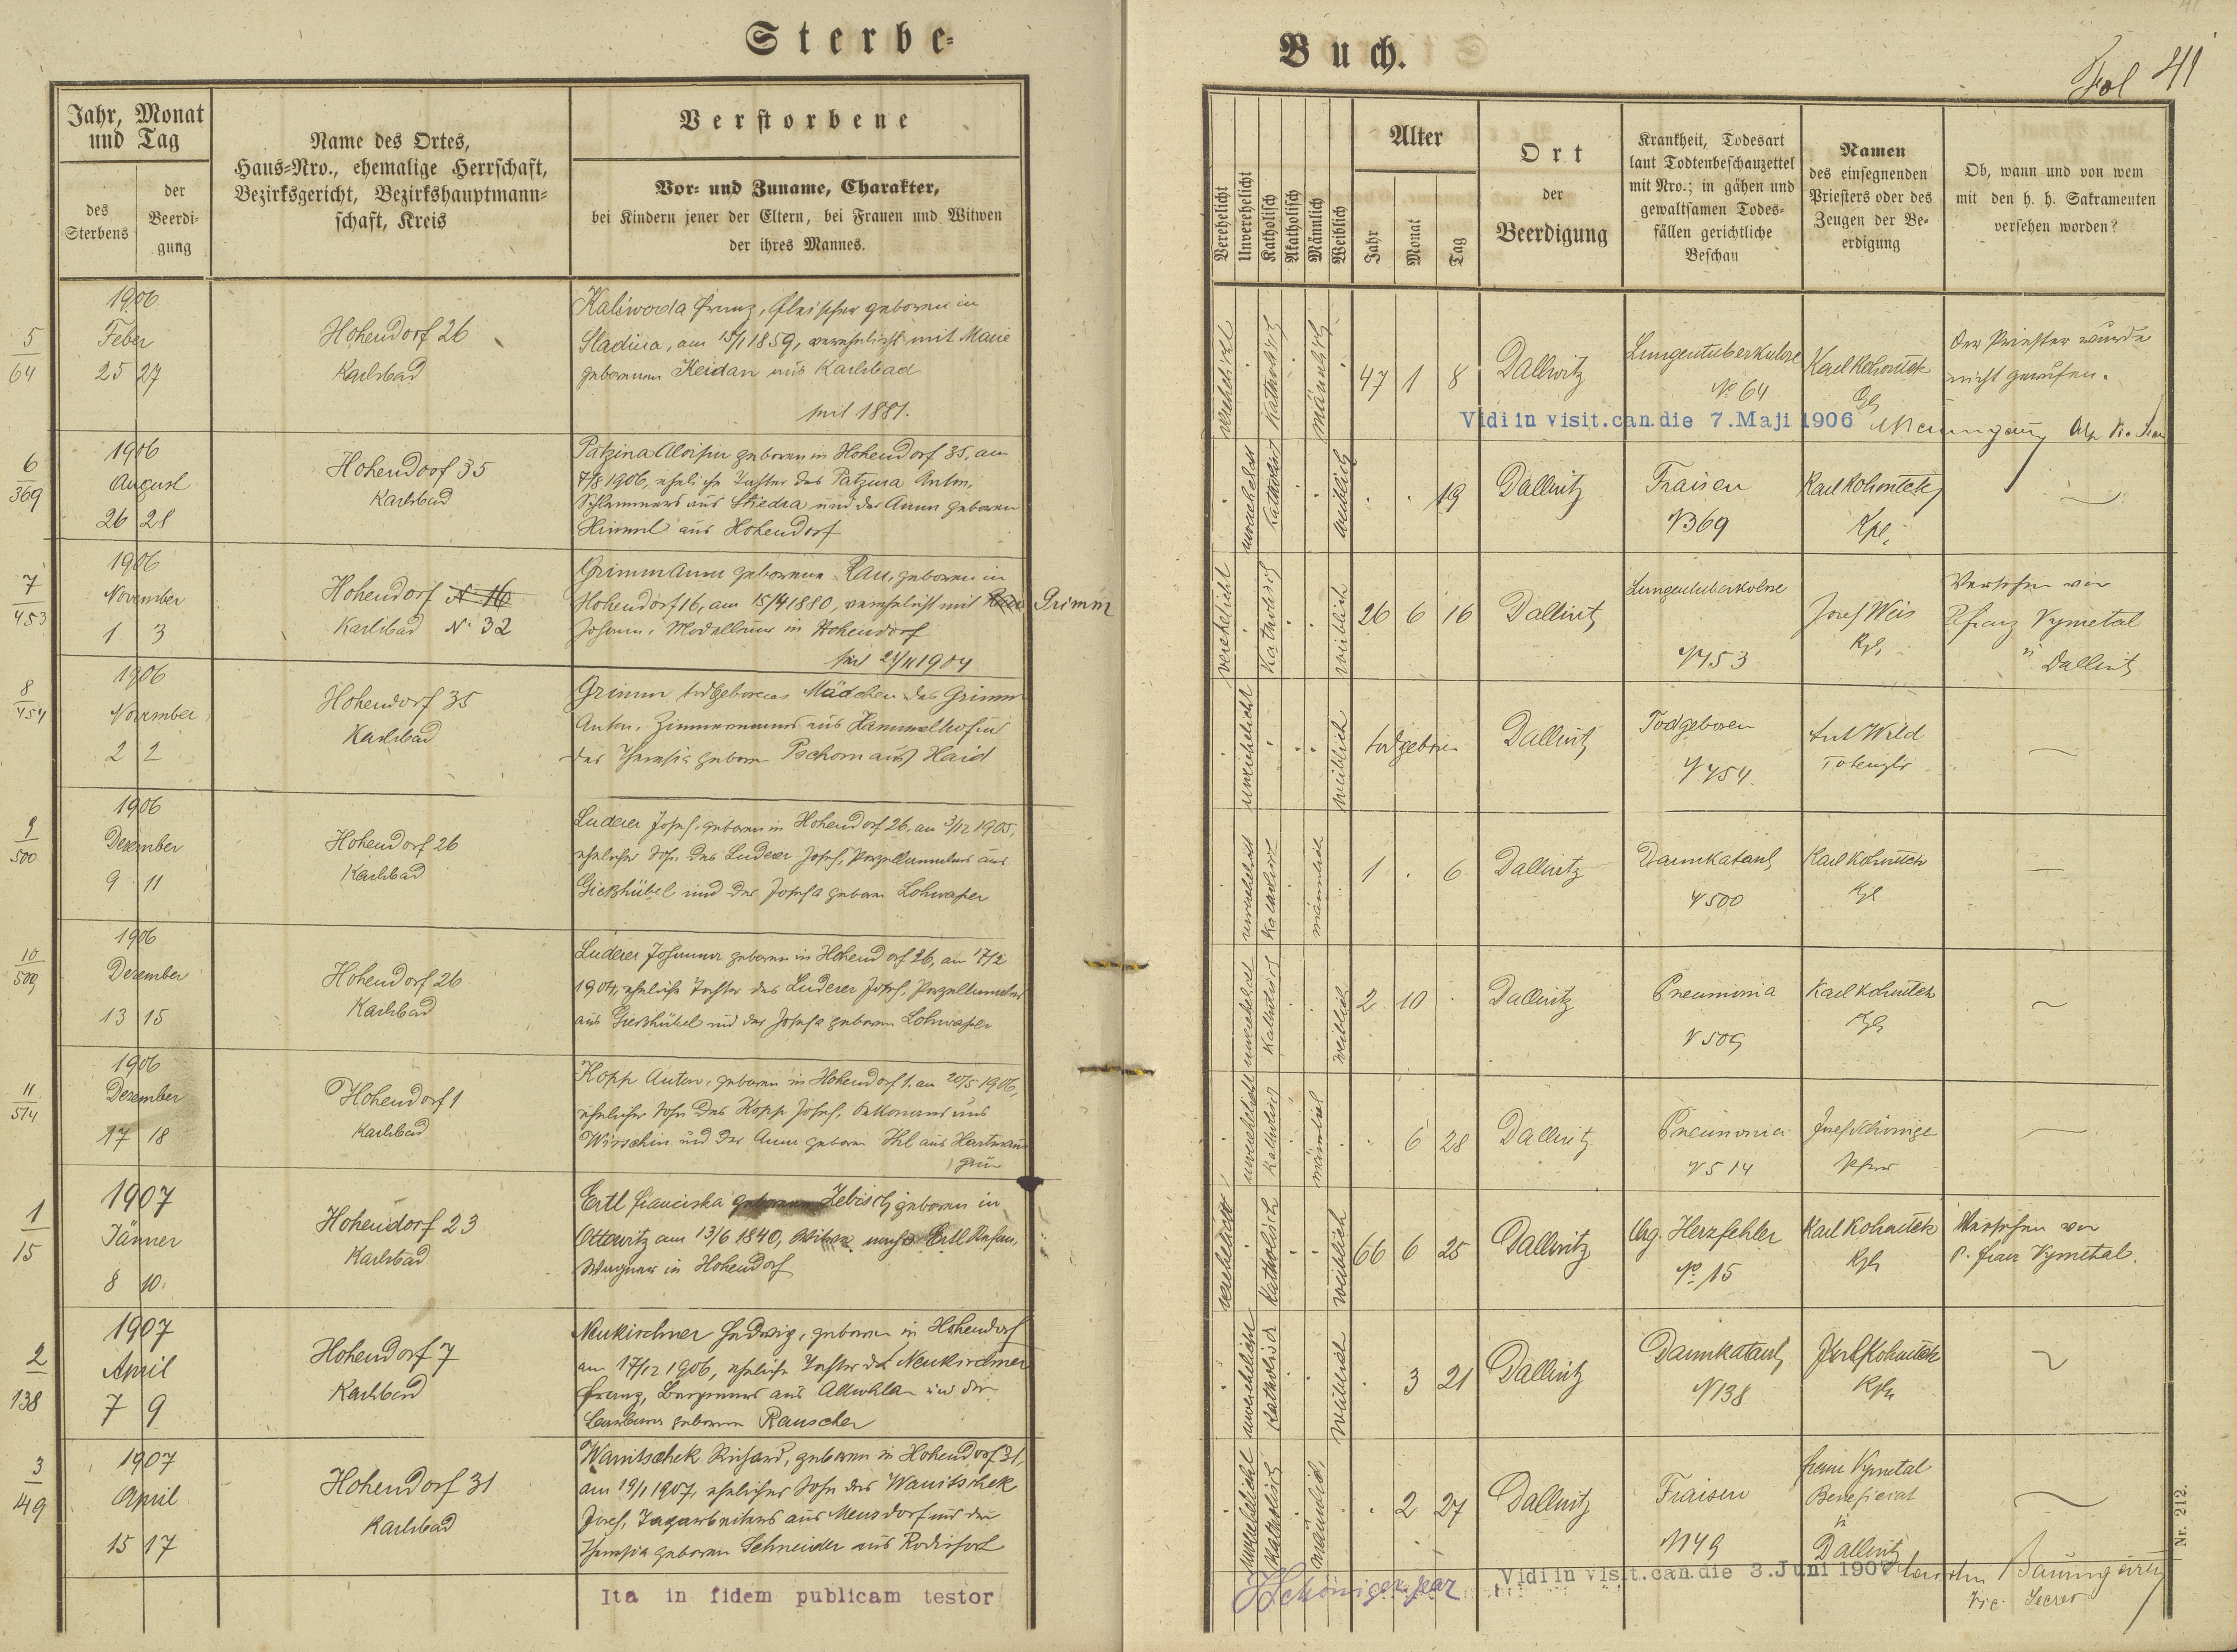 Sterbe-
Buch.
Fol 41
Jahr, Monat und Tag
des Sterbens
der Beerdi-
gung
Name des Ortes,
Haus-Nro., ehemalige Herrschaft,
Bezirksgericht, Bezirkshauptmann-
schaft, Kreis
Verstorbene
Vor- und Zuname, Charakter,
bei Kindern jener der Eltern, bei Frauen und Witwen
der ihres Mannes.
Verehelicht
Unverehelicht
Katholisch
Akatholisch
Männlich
Weiblich
Alter
Jahr
Monat
Tag
Ort
der
Beerdigung
Krankheit, Todesart
laut Todtenbeschauzettel
mit Nro.; in gähen und
gewaltsamen Todes-
fällen gerichtliche
Beschau
Namen
des einsegnenden
Priesters oder des
Zeugen der Be-
erdigung
Ob, wann und von wem
mit den h. h. Sakramenten
versehen worden?
5
64
1906
Feber
25 27
Hohendorf 26
Karlsbad
Kaliwoda Franz, Fleischer geboren in
Sladina, am 15/1 1859, verehelicht mit Marie
geborenen Keidan aus Karlsbad
seit 1881.
verehelicht
katholisch
männlich
47 1 8
Dallwitz
Lungentuberkulose
No 64
Karl Kohoutek
Kpl
Der Priester wurde
nicht gerufen.
Vidi in visit. can. die 7. Maji 1906
6
369
1906
August
26 28
Hohendorf 35
Karlsbad
Patzina Aloisia geboren in Hohendorf 35, am
7/8 1906, eheliche Tochter des Patzina Anton,
Schlemmers aus Stiedra und der Anna geboren
Himml aus Hohendorf
unverehelicht
katholisch
weiblich
19
Dallwitz
Fraisen
N 369
Karl Kohoutek
Kpl.
7
453
1906
November
1 3
Hohendorf N 16
Karlsbad N. 32
Grimm Anna geborene Rau, geboren in
Hohendorf 16, am 15/4 1880, verehelicht mit Grimm
Johann, Modelleur in Hohendorf
seit 21/11 1904
verehelicht
katholisch
weiblich
26 6 16
Dallwitz
Lungentuberkulose
N 453
Josef Weis
Kpl.
Versehen von
P. Franz Vymetal
in Dallwitz
8
454
1906
November
2 2
Hohendorf 35
Karlsbad
Grimm todgeborenes Mädchen des Grimm
Anton, Zimmermanns aus Hammelhof und
der Theresia geboren Pschorn aus Haid
unverehelicht
weiblich
todgeboren
Dallwitz
Todgeboren
N 454.
Ant Wild
Totengbr
9
500
1906
Dezember
9 11
Hohendorf 26
Karlsbad
Luderer Josef, geboren in Hohendorf 26, am 3/12 1905,
ehelicher Sohn des Luderer Josef, Porzellanmalers aus
Gießhübel und der Josefa geboren Lohwasser
unverehelicht
katholisch
männlich
1 . 6
Dallwitz
Darmkatarrh
N 500
Karl Kohoutek
Kpl
10
509
1906
Dezember
13 15
Hohendorf 26
Karlsbad
Luderer Johanna geboren in Hohendorf 26, am 17/2
1904, eheliche Tochter des Luderer Josef, Porzellanmalers
aus Gießhübel und der Josefa geboren Lohwasser
unverehelicht
katholisch
weiblich
2 10
Dallwitz
Pneumonia
N 509
Karl Kohoutek
Kpl
11
514
1906
Dezember
17 18
Hohendorf 1
Karlsbad
Kopp Anton, geboren in Hohendorf 1. am 20/5 1906,
ehelicher Sohn des Kopp Josef, Oekonoms aus
Wirschin und der Anna geboren Ihl aus Hartmanns
grün
unverehelicht
katholisch
männlich
6 28
Dallwitz
Pneumonia
N 514
Josef Schöniger
Pfarrer
1
15
1907
Jänner
8 10.
Hohendorf 23
Karlsbad
Ertl Franziska geborene Zebisch geboren in
Ottowitz am 13/6 1840, Witwe nach Ertl
Wagner in Hohendorf
verehelicht
katholisch
weiblich
66 6 25
Dallwitz
Org. Herzfehler
No 15
Karl Kohoutek
Kpl.
Versehen von
P. Franz Vymetal.
2
138
1907
April
7 9
Hohendorf 7
Karlsbad
Neukirchner Hedwig, geboren in Hohendorf
am 17/12 1906, eheliche Tochter des Neukirchner
Franz, Bergmanns aus Allwohlau und der
Barbara geborenen Rauscher
unverehelicht
katholisch
weiblich
3 21
Dallwitz
Darmkatarrh
N 138
Karl Kohoutek
Kpl.
3
149
1907
April
15 17
Hohendorf 31
Karlsbad
Wanitschek Richard, geboren in Hohendorf 31,
am 19/1 1907, ehelicher Sohn des Wanitschek
Josef, Tagarbeiters aus Mensdorf und der
Theresia geboren Schneider aus Rodisfort
unverehelicht
katholisch
männlich
2 27
Dallwitz
Fraisen
N 149
Franz Vymetal
Beneficiat
in
Dallwitz
Ita in fidem publicam testor
J Schöniger
Vidi in visit. can. die 3. Juni 1907
Baumgartl
Vic. Secret
Nr. 212.